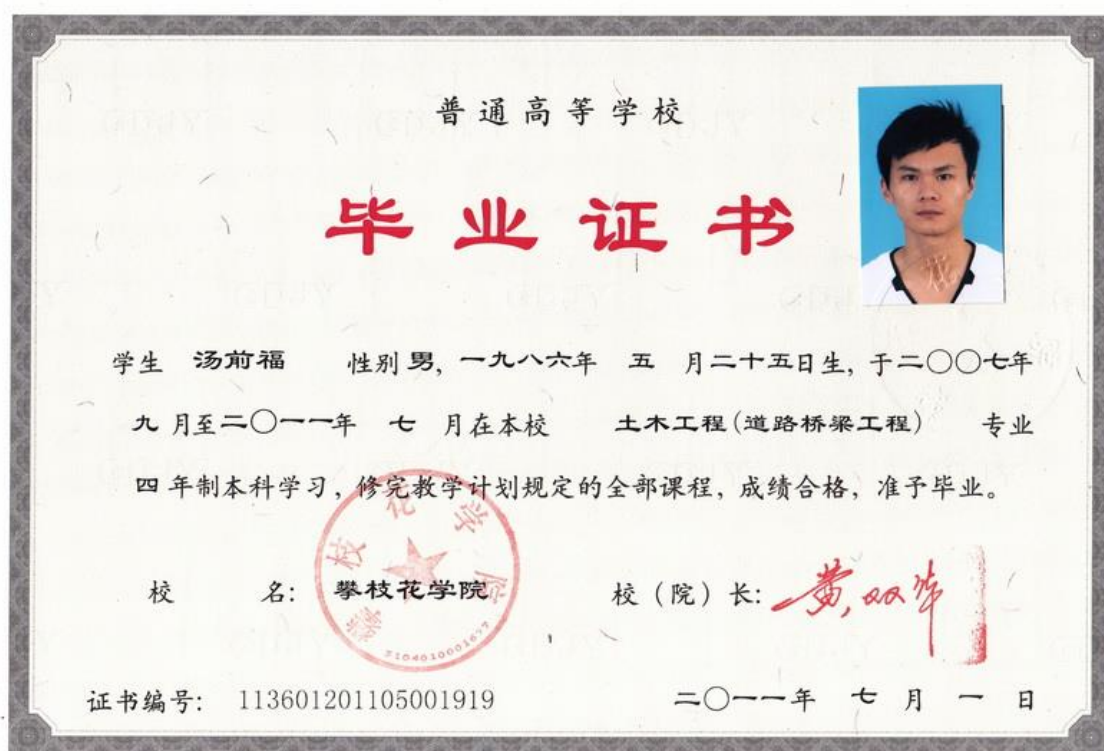 普通高等学校
毕业证书
学生 汤前福 性别 男, 一九八六年 五 月二十五日生, 于二〇〇七年
九 月至二〇一一年 七 月在本校 土木工程(道路桥梁工程) 专业
四 年制本科学习, 修完教学计划规定的全部课程, 成绩合格, 准予毕业。
攀枝花学院
5104010001677
校 名: 攀枝花学院 校(院)长: 黄双华
证书编号: 113601201105001919 二〇一一年 七 月 一 日